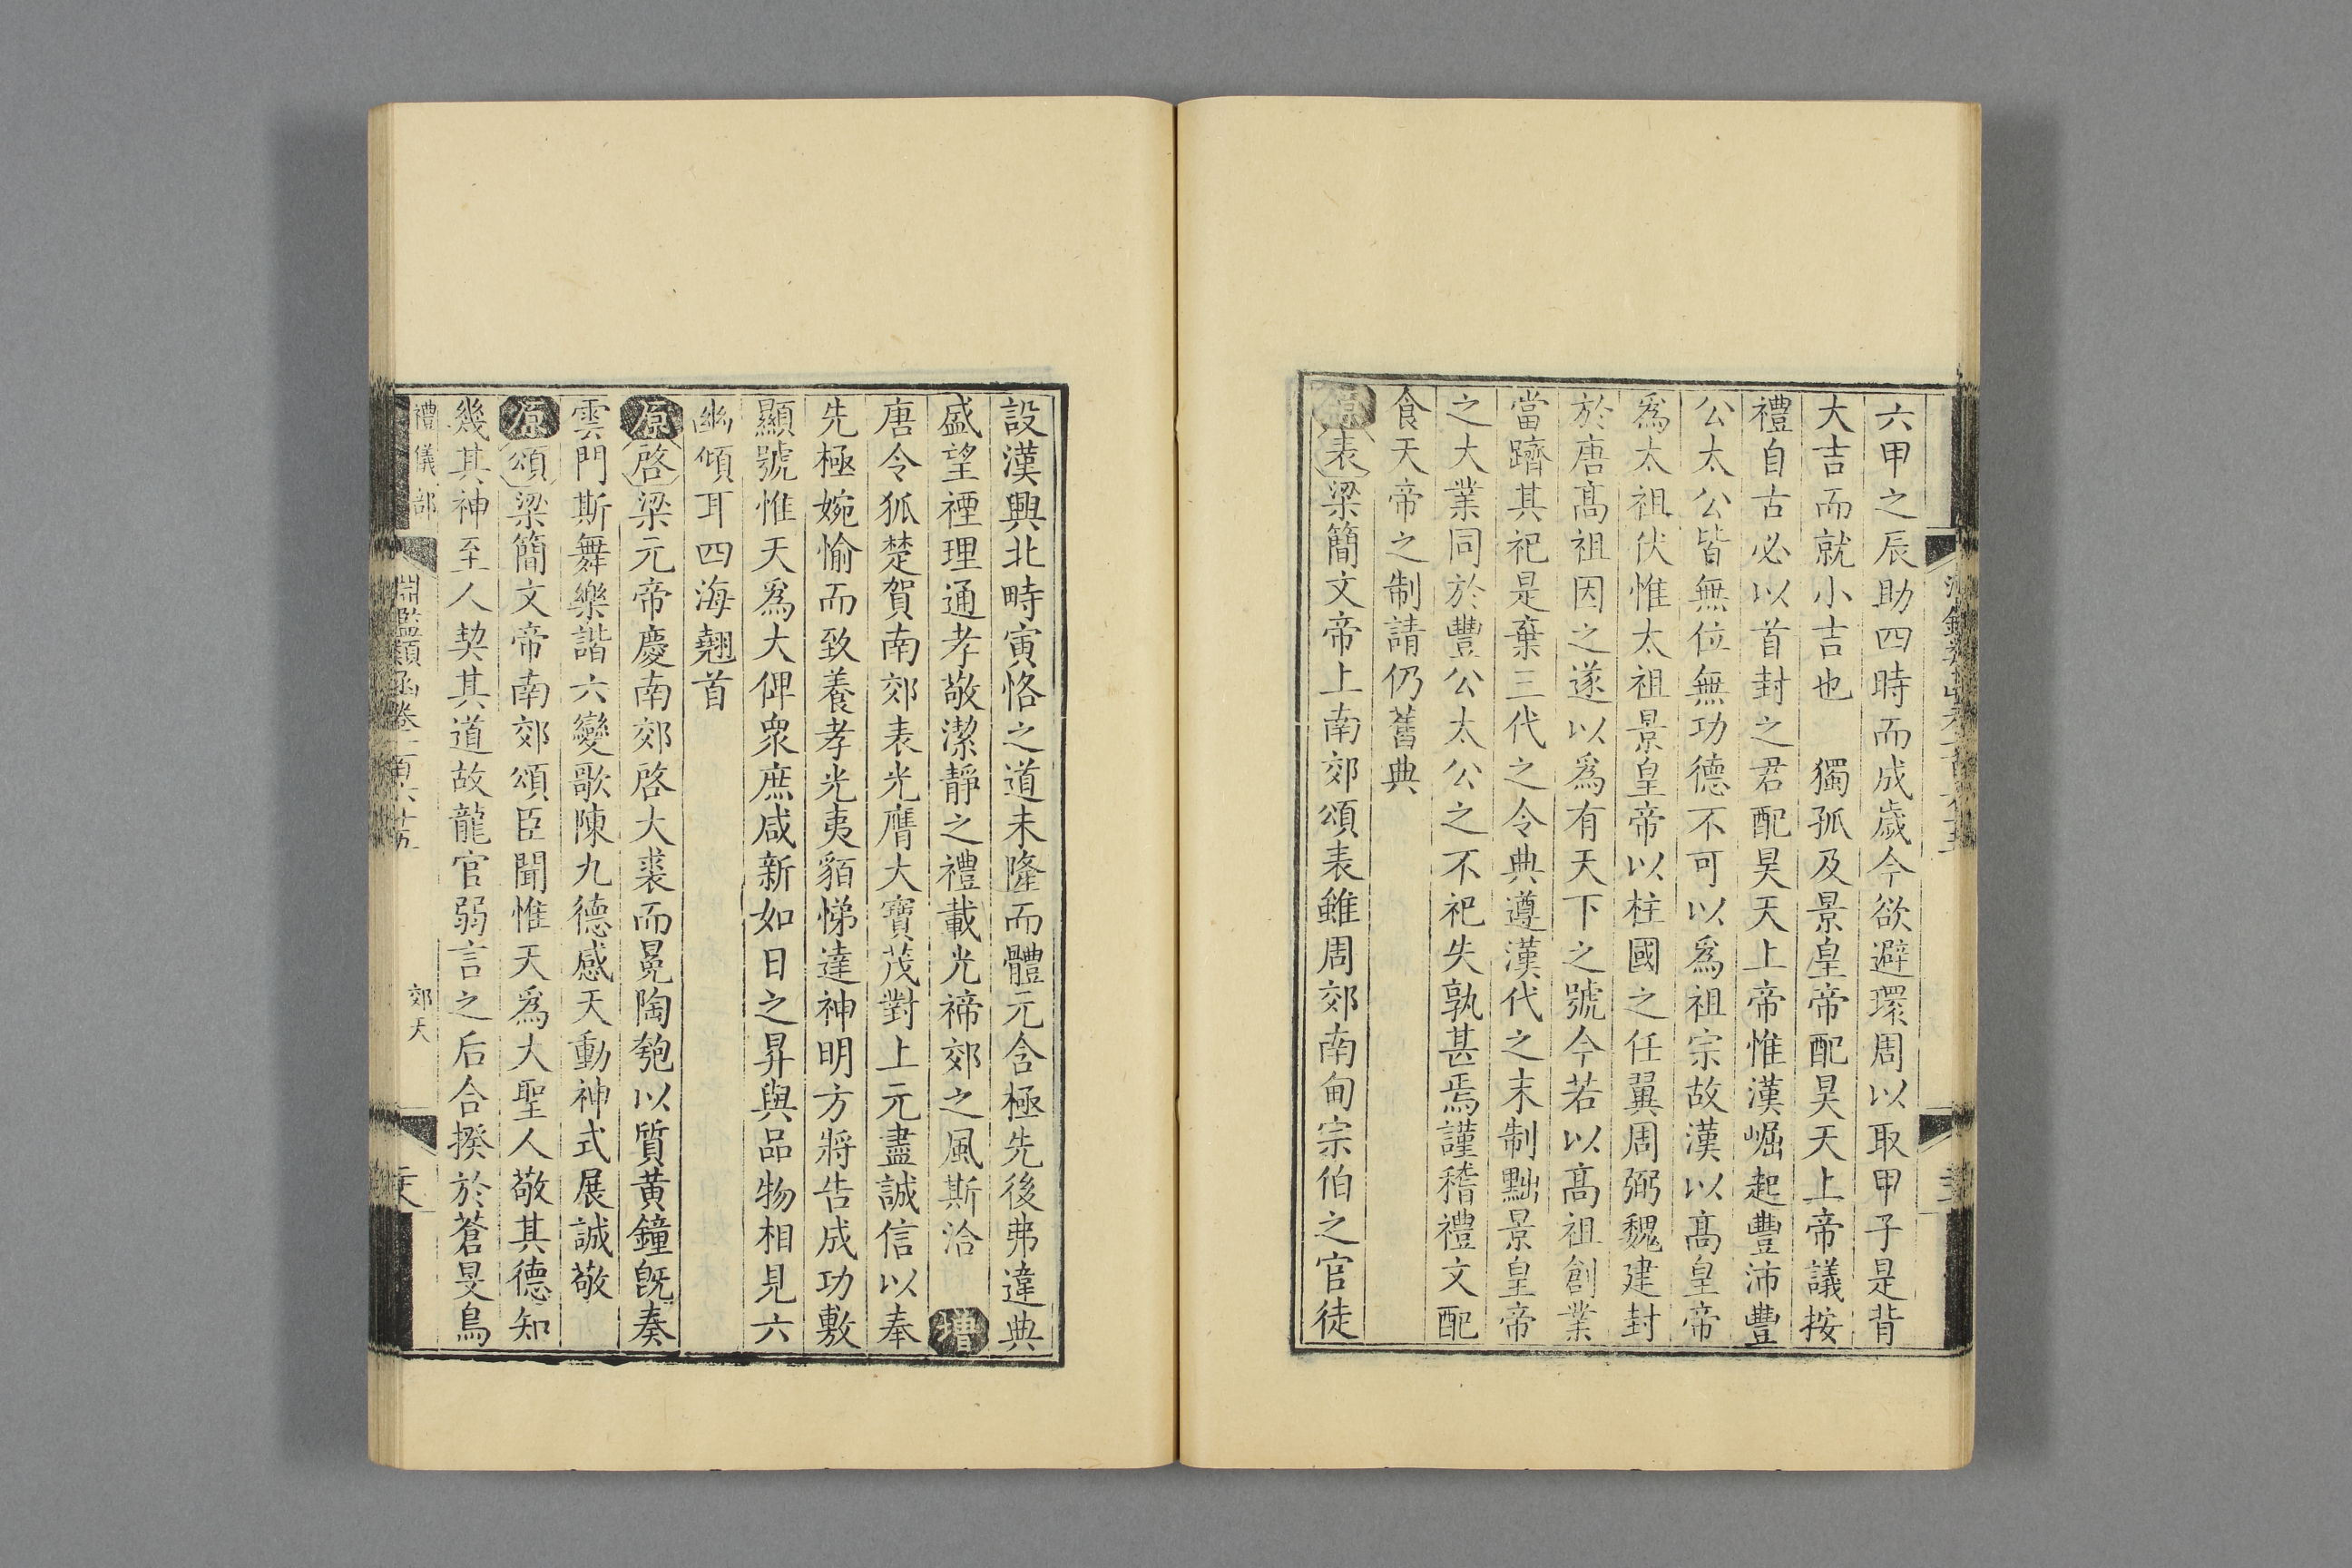 六甲之辰助四時而成歲今欲避環周以取甲子是背
大吉而就小吉也　獨孤及景皇帝配昊天上帝議按
禮自古必以首封之君配昊天上帝惟漢崛起豐沛豐
公太公皆無位無功德不可以爲祖宗故漢以髙皇帝
爲太祖伏惟太祖景皇帝以柱國之任翼周弼魏建封
於唐髙祖因之遂以爲有天下之號今若以髙祖創業
當躋其祀是棄三代之令典遵漢代之末制黜景皇帝
之大業同於豐公太公之不祀失孰甚焉謹稽禮文配
食天帝之制請仍舊典
原表梁簡文帝上南郊頌表雖周郊南甸宗伯之官徒
設漢興北畤寅恪之道未隆而體元含極先後弗違典
盛望禋理通孝敬潔靜之禮載光禘郊之風斯洽　增
唐令狐楚賀南郊表光膺大寶茂對上元盡誠信以奉
先極婉愉而致養孝光夷貊悌達神明方將告成功敷
顯號惟天爲大俾衆庶咸新如日之昇與品物相見六
幽傾耳四海翹首
原啓梁元帝慶南郊啓大裘而冕陶匏以質黄鐘旣奏
雲門斯舞樂諧六變歌陳九德感天動神式展誠敬
原頌梁簡文帝南郊頌臣聞惟天爲大聖人敬其德知
幾其神至人契其道故龍官弱言之后合揆於蒼旻鳥
禮儀部
淵鑑類函卷一百六十五
郊天